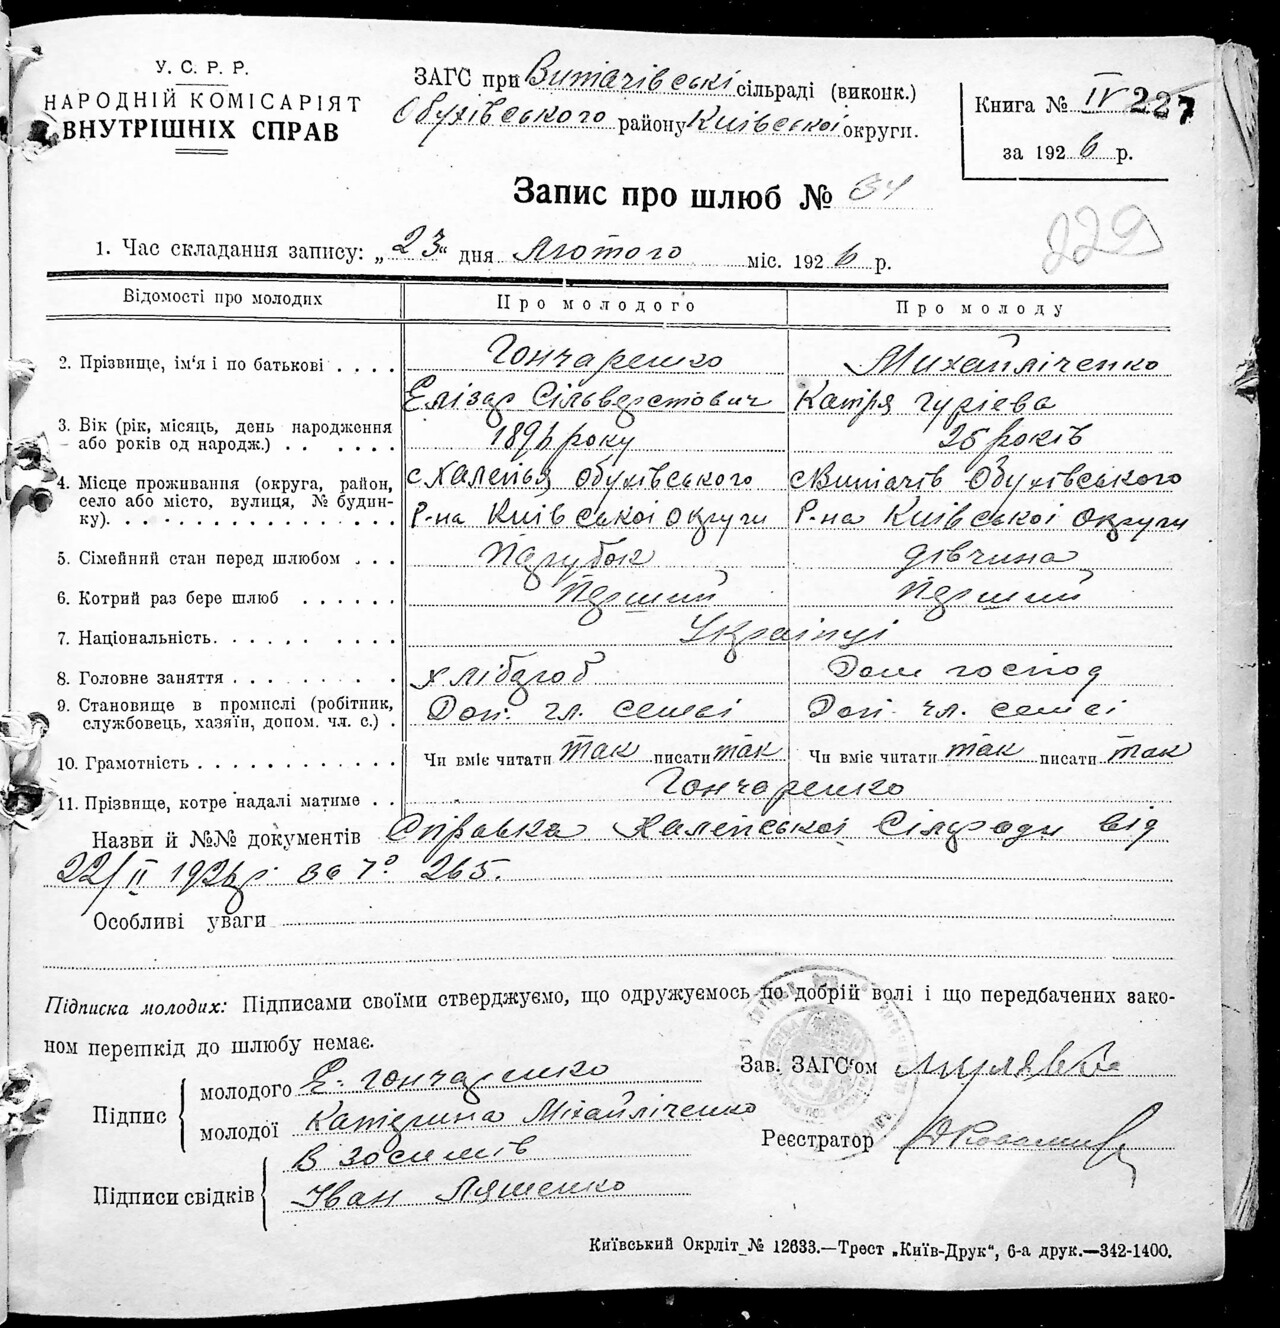 У. С. Р. Р.
НАРОДНІЙ КОМІСАРІЯТ
ВНУТРІШНІХ СПРАВ
ЗАГС при Витачівські сільраді (виконк.)
Обухівського району Київської округи.
Книга № IV 227
за 1926 р.
Запис про шлюб № 34
229
1. Час складання запису: „23“ дня Лютого міс. 1926 р.
Відомості про молодих Про молодого Про молоду
2. Прізвище, ім'я і по батькові . . . . Гончаренко Михайліченко
Елізар Сільверстович Катря Гуріева
3. Вік (рік, місяць, день народження
або років од народж.) . . . . . . . року 25 років
4. Місце проживання (округа, район, с Халепья Обухівського с Витачів Обухівського
село або місто, вулиця, № будин-
ку). . . . . . . . . . . . . . . . . Р-на Київської округи Р-на Київської округи
5. Сімейний стан перед шлюбом . . . Парубок дівчина
6. Котрий раз бере шлюб . . . . . . Перший Перший
7. Національність. . . . . . . . . . Українці
8. Головне заняття . . . . . . . . . хлібороб Дом господ
9. Становище в промислі (робітник,
службовець, хазяїн, допом. чл. с.) . Доп. чл. семєі Доп. чл. семєі
10. Грамотність . . . . . . . . . . . . Чи вміє читати так писати так Чи вміє читати так писати так
11. Прізвище, котре надалі матиме . . Гончаренко
Назви й №№ документів Справка Халепської Сілради від
22/II 1926р за № 265.
Особливі уваги
Підписка молодих: Підписами своїми стверджуємо, що одружуємось по добрій волі і що передбачених зако-
ном перешкід до шлюбу немає.
Зав. ЗАГС'ом
Підпис
молодого Е. Гончаренко
молодої Катерина Міхайліченко
Реєстратор
Підписи свідків
В Зосимів
Іван Ляшенко
Київський Окрліт № 12633.—Трест „Київ-Друк“, 6-а друк.—342-1400.